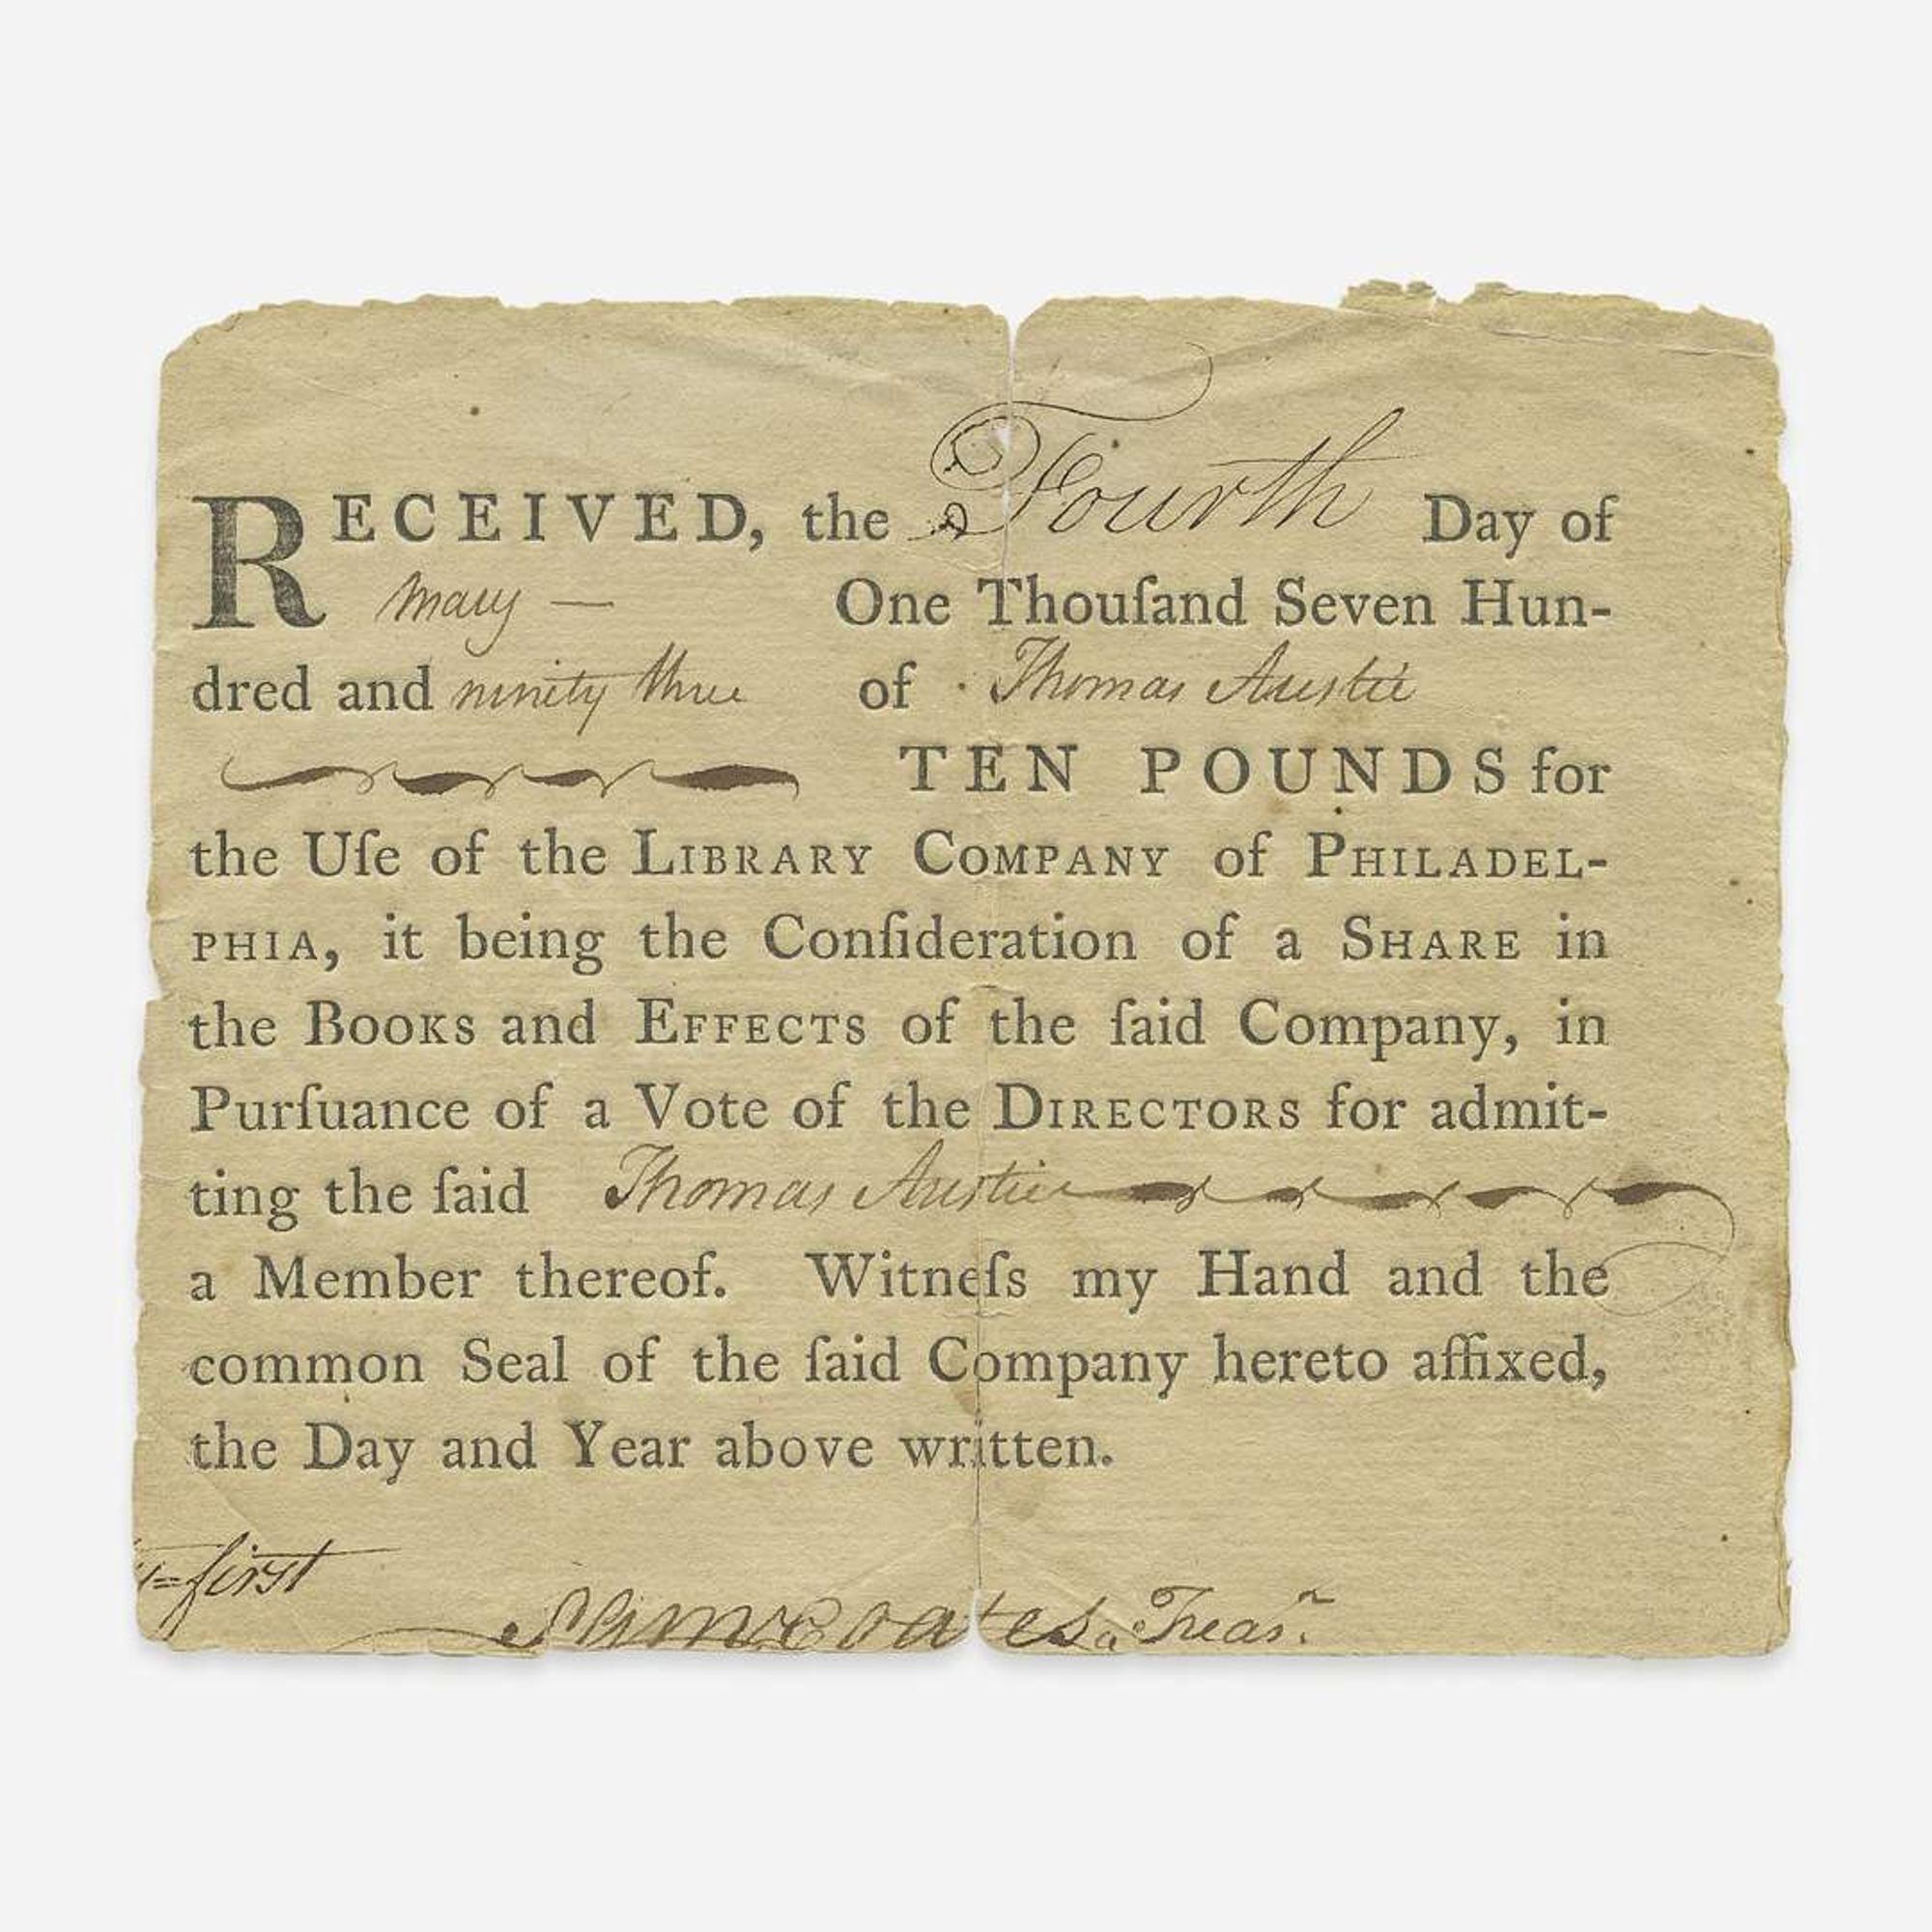 RECEIVED, the Fourth Day of
mary — One Thouſand Seven Hun-
dred and ninety three of Thomas Austie
TEN POUNDS for
the Uſe of the LIBRARY COMPANY of PHILADEL-
PHIA, it being the Conſideration of a SHARE in
the BOOKS and EFFECTS of the ſaid Company, in
Purſuance of a Vote of the DIRECTORS for admit-
ting the ſaid Thomas Austie
a Member thereof. Witneſs my Hand and the
common Seal of the ſaid Company hereto affixed,
the Day and Year above written.
=first
Coates, Treasr.